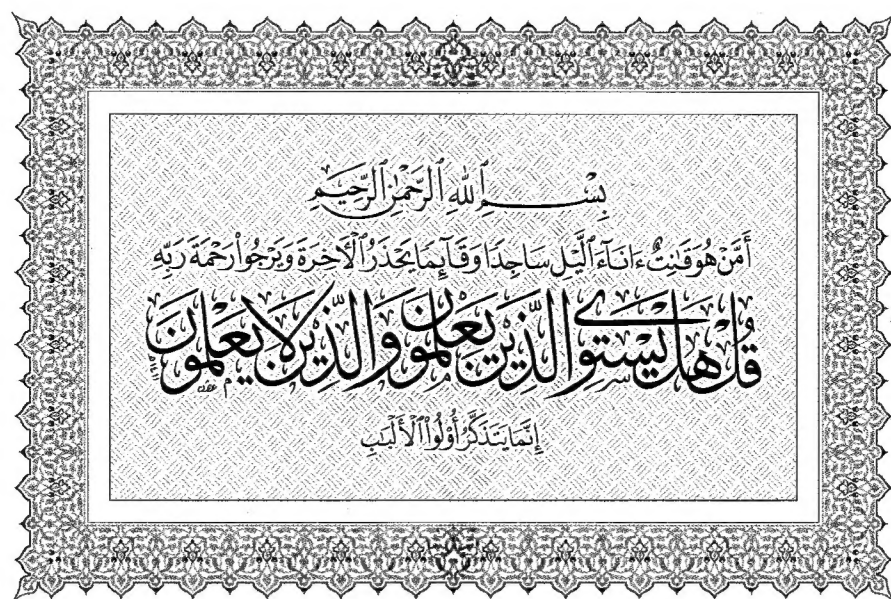 بِسْمِ ٱللَّهِ ٱلرَّحْمَٰنِ ٱلرَّحِيمِ
أَمَّنْ هُوَ قَٰنِتٌ ءَانَآءَ ٱلَّيْلِ سَاجِدًا وَقَآئِمًا يَحْذَرُ ٱلْأَخِرَةَ وَيَرْجُوا۟ رَحْمَةَ رَبِّهِ
قُلْ هَلْ يَسْتَوِى الَّذِينَ يَعْلَمُونَ وَالَّذِينَ لَا يَعْلَمُونَ
إِنَّمَا يَتَذَكَّرُ أُو۟لُوا۟ ٱلْأَلْبَٰبِ